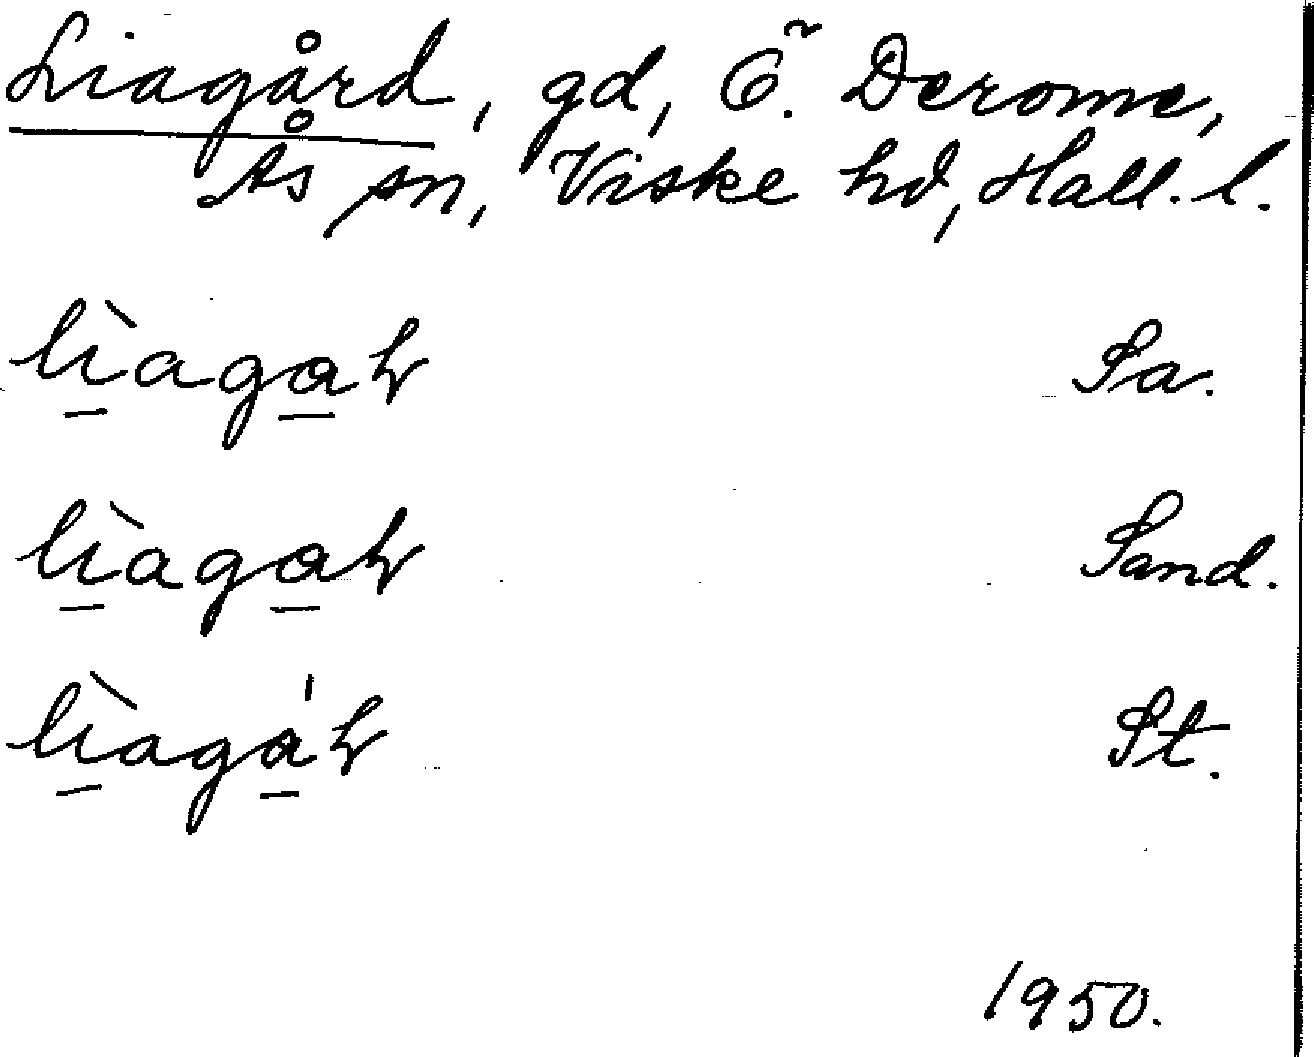 Liagård, gd, Ö. Derome,
Ås sn, Viske hd, Hall. l.
lìagah Sa.
lìagah Sand.
lìagáh St.
1950.